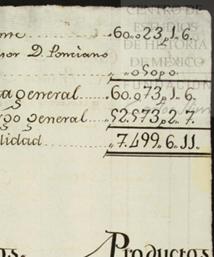 CENTRO DE
ESTUDIOS
DE HISTORIA
DE MÉXICO
60„023„1„6.
nor D. Ponciano
„050„0.
general 60„073„1„6.
general 52„573„2„7.
lidad 7„499„6„11.
os. Productos